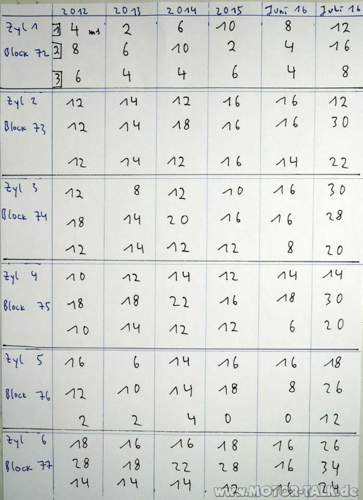 2012 2013 2014 2015 Juni 16 Juli 16
Zyl 1 1 4 ms 2 6 10 8 12
Block 72 2 8 6 10 2 4 16
3 6 4 4 6 4 8
Zyl 2 12 14 12 16 16 12
Block 73 12 14 18 16 16 30
12 14 12 16 14 22
Zyl 3 12 8 12 10 16 30
Block 74 18 14 20 16 16 28
12 14 12 12 8 20
Zyl 4 10 12 14 12 14 14
Block 75 18 18 22 16 18 30
10 14 12 12 6 20
Zyl 5 16 6 14 16 16 18
Block 76 12 10 14 18 8 26
2 2 4 0 0 12
Zyl 6 18 16 16 18 16 26
Block 77 28 18 22 28 16 34
14 14 14 12 16 24
www.MOTOR-TALK.de